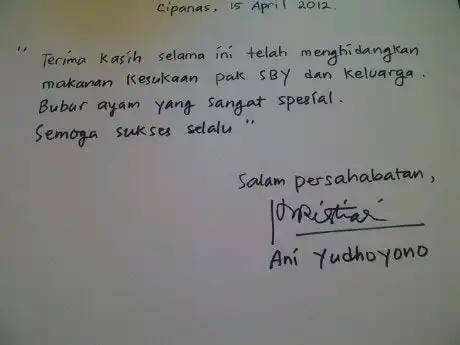 Cipanas, 15 April 2012.
" Terima kasih selama ini telah menghidangkan
makanan kesukaan pak SBY dan keluarga.
Bubur ayam yang sangat spesial.
Semoga sukses selalu "
Salam persahabatan,
Ani Yudhoyono